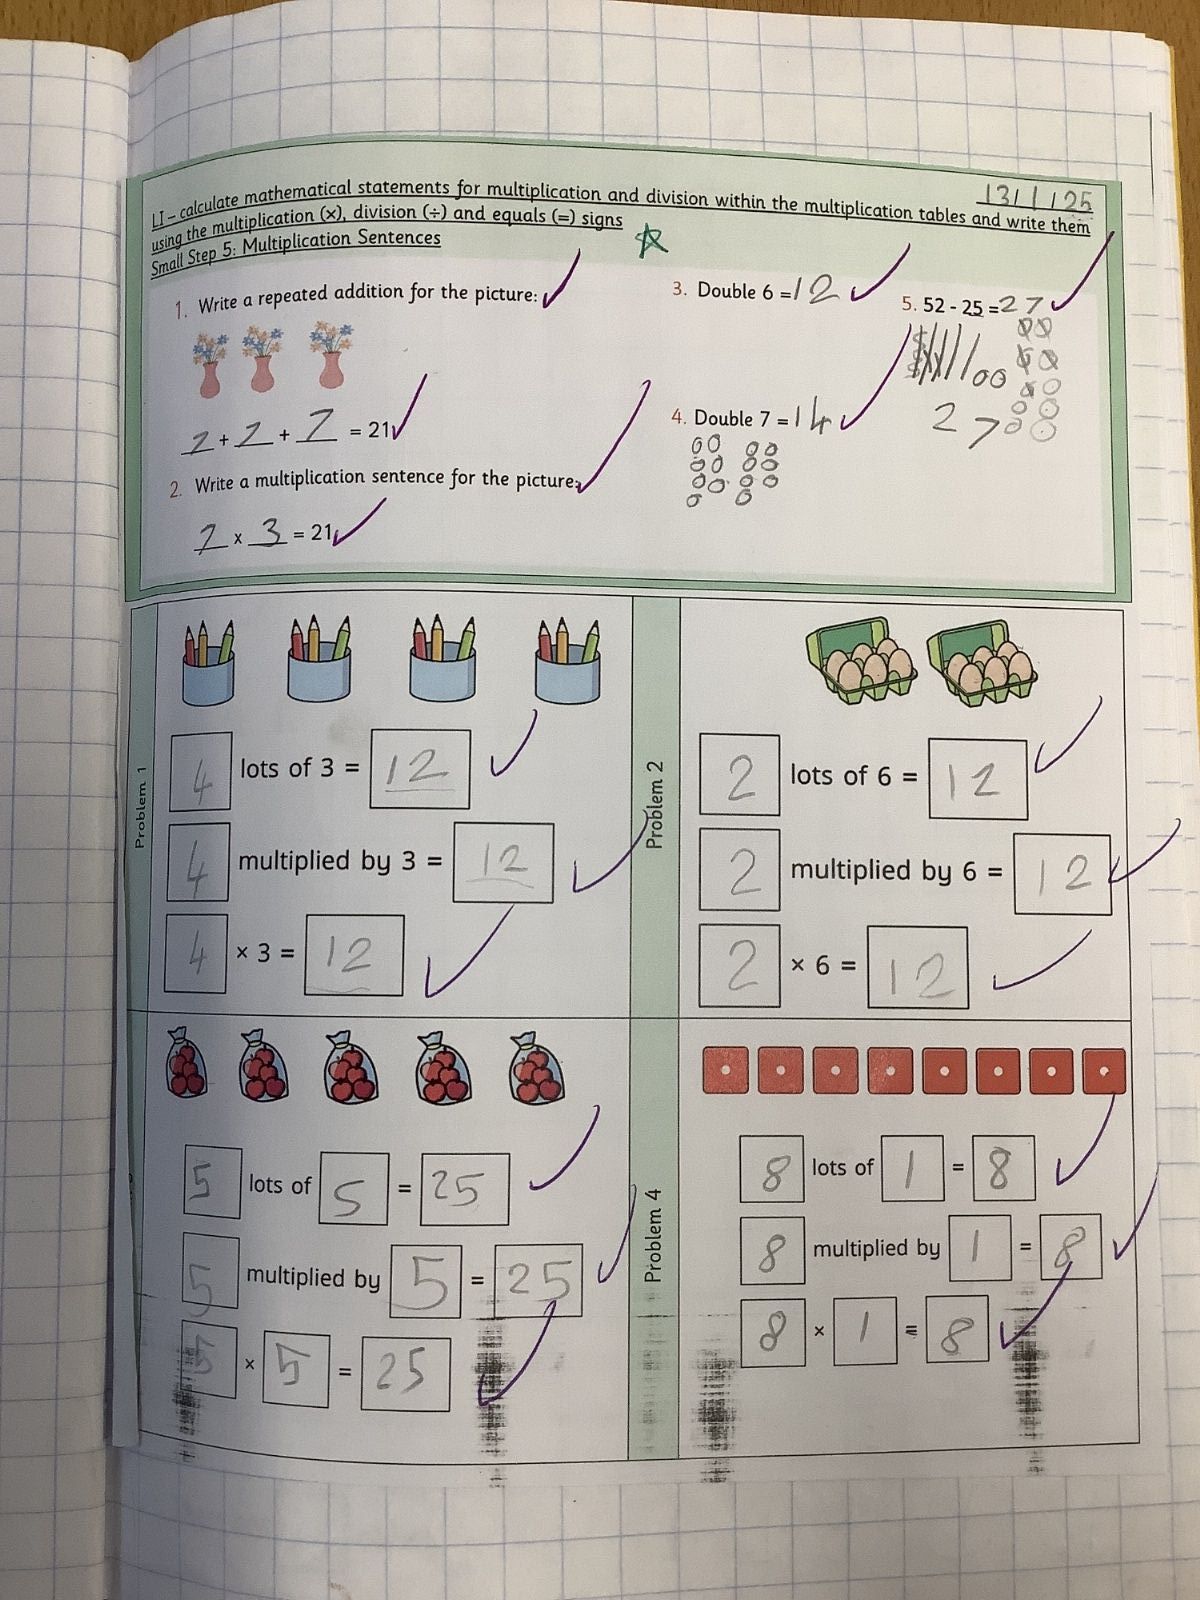 13/1/25
LI – calculate mathematical statements for multiplication and division within the multiplication tables and write them
using the multiplication (×), division (÷) and equals (=) signs
Small Step 5: Multiplication Sentences
1. Write a repeated addition for the picture:
7 + 7 + 7 = 21
2. Write a multiplication sentence for the picture:
7 x 3 = 21
3. Double 6 = 12
4. Double 7 = 14
5. 52 - 25 = 27
27
Problem 1
4 lots of 3 = 12
4 multiplied by 3 = 12
4 × 3 = 12
Problem 2
2 lots of 6 = 12
2 multiplied by 6 = 12
2 × 6 = 12
5 lots of 5 = 25
5 multiplied by 5 = 25
5 × 5 = 25
Problem 4
8 lots of 1 = 8
8 multiplied by 1 = 8
8 × 1 = 8